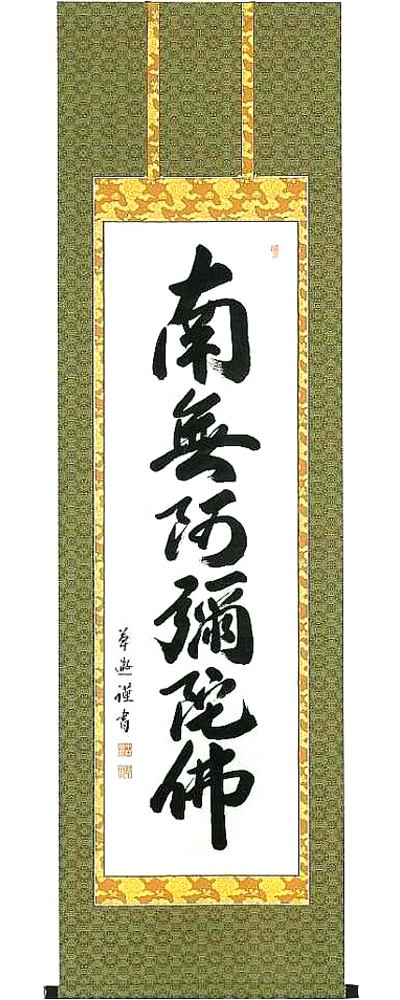 南無阿彌陀佛
草遊謹書